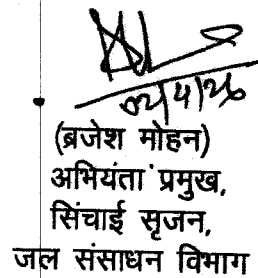 (ब्रजेश मोहन)
अभियंता प्रमुख,
सिंचाई सृजन,
जल संसाधन विभाग